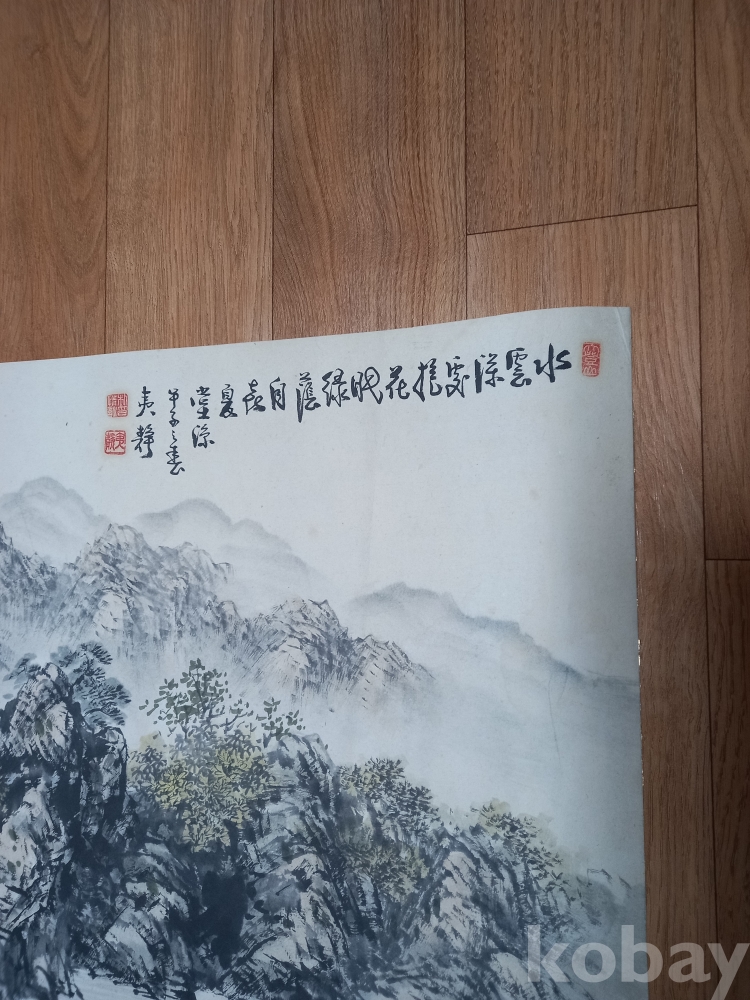 水雲深處抱花眠綠蔭自喜夏
堂凉
甲子之春
夷靜
kobay